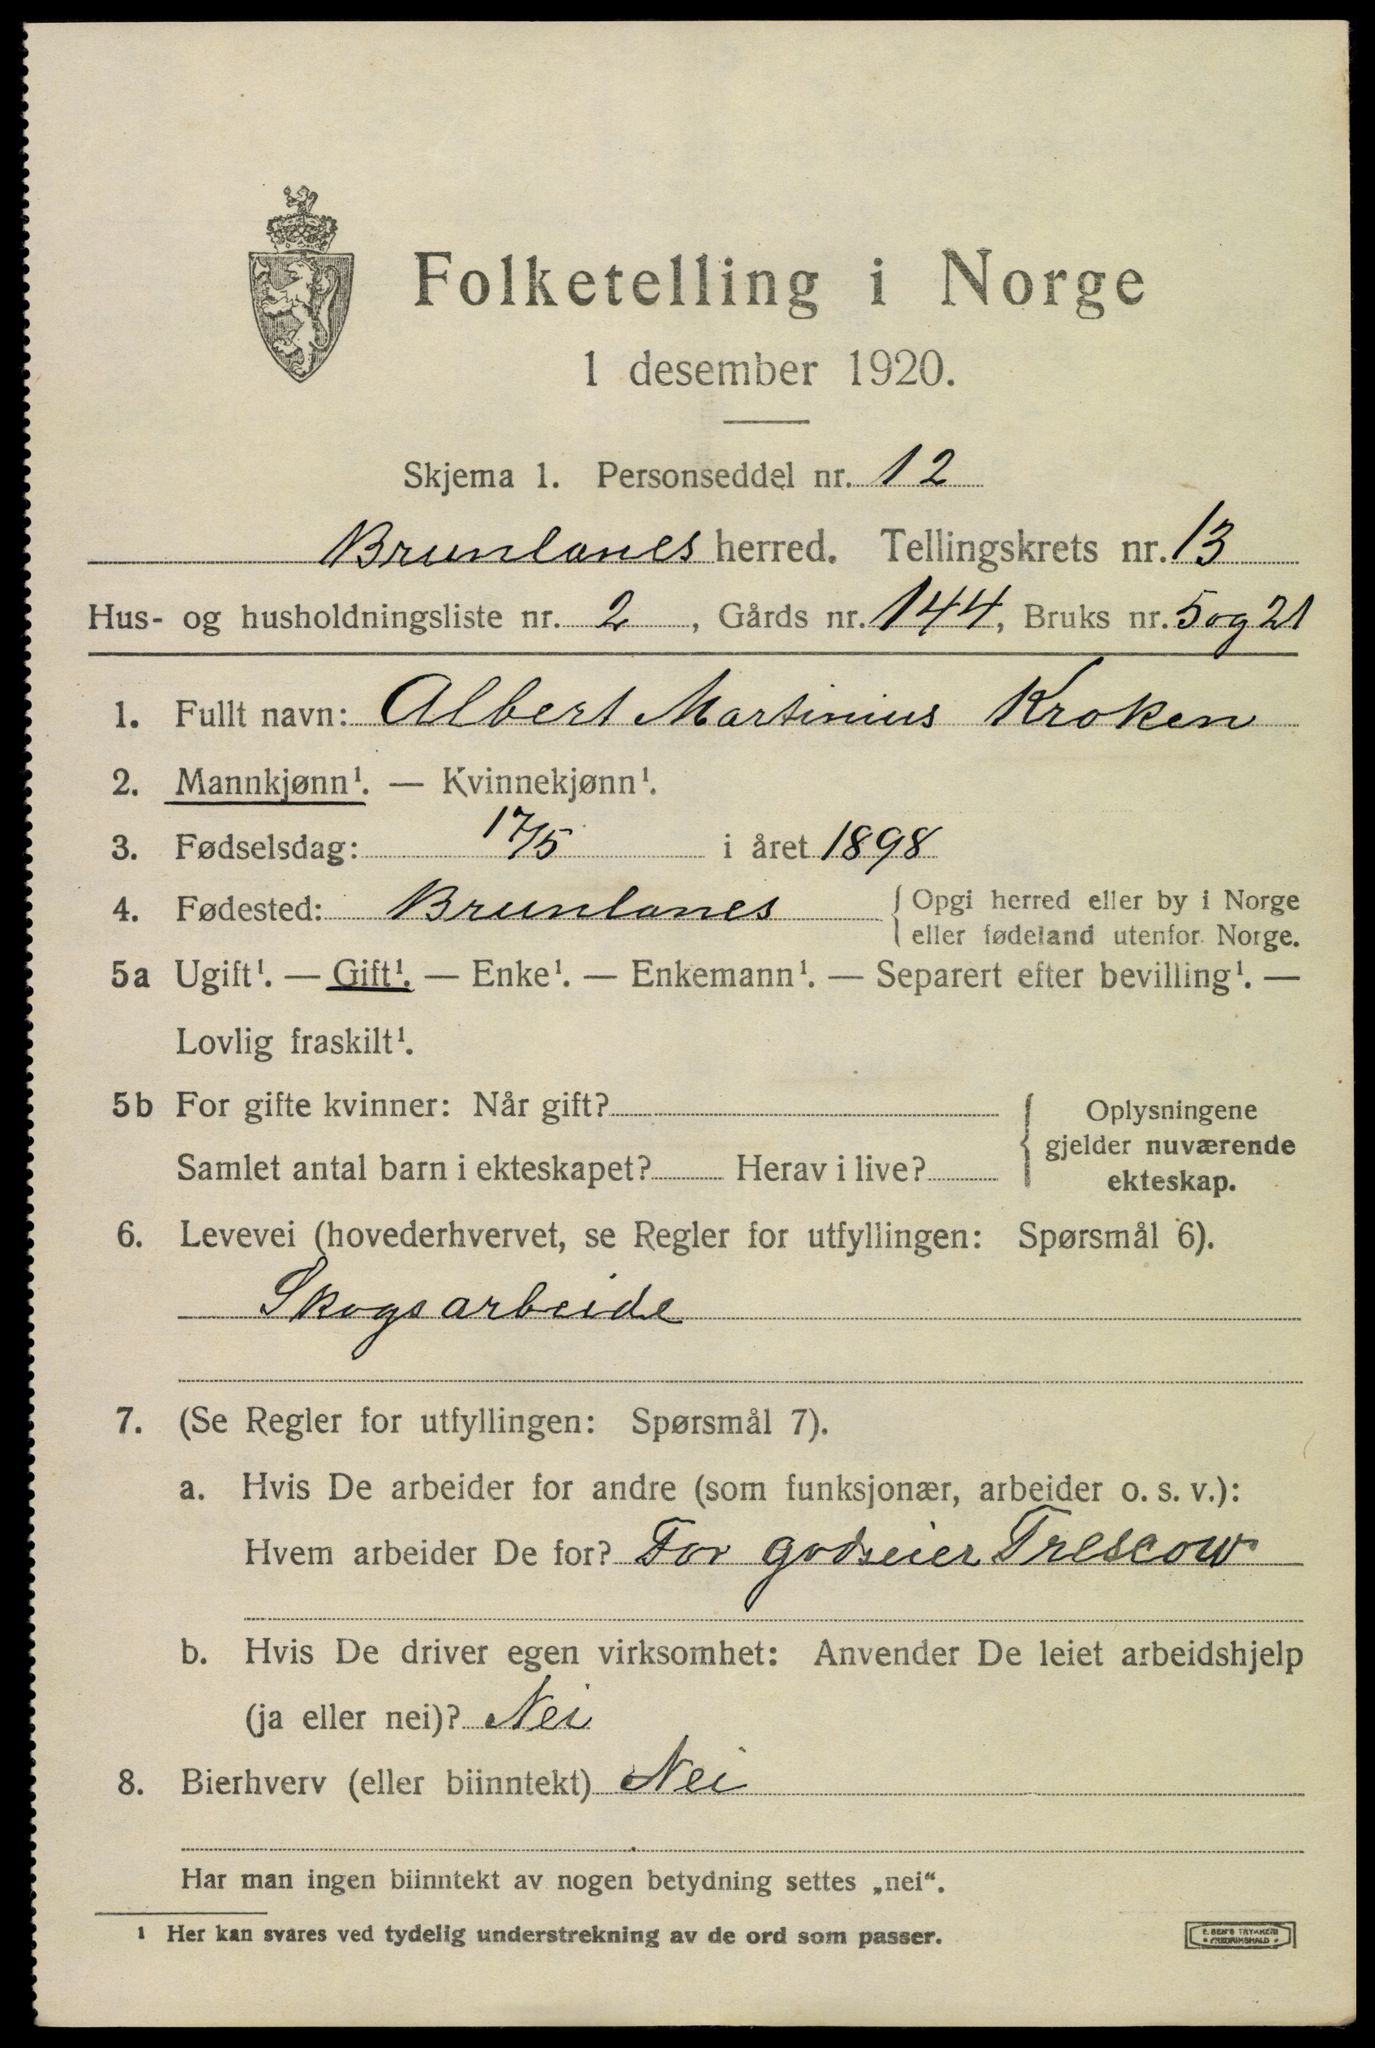 Folketelling i Norge
1 desember 1920.
Skjema 1. Personseddel nr. 12
Brunlanes herred. Tellingskrets nr. 13
Hus- og husholdningsliste nr. 2, Gårds nr. 144, Bruks nr. 5 og 21
1. Fullt navn: Albert Martinius Kroken
2. Mannkjønn¹. — Kvinnekjønn¹.
3. Fødselsdag: 17/5 i året 1898
4. Fødested: Brunlanes { Opgi herred eller by i Norge
eller fødeland utenfor Norge.
5a Ugift¹. — Gift¹. — Enke¹. — Enkemann¹. — Separert efter bevilling¹. —
Lovlig fraskilt¹.
5b For gifte kvinner: Når gift?
Samlet antal barn i ekteskapet? Herav i live?
Oplysningene
gjelder nuværende
ekteskap.
6. Levevei (hovederhvervet, se Regler for utfyllingen: Spørsmål 6).
Skogsarbeide
7. (Se Regler for utfyllingen: Spørsmål 7).
a. Hvis De arbeider for andre (som funksjonær, arbeider o. s. v.):
Hvem arbeider De for? For godseier Trescow
b. Hvis De driver egen virksomhet: Anvender De leiet arbeidshjelp
(ja eller nei)? Nei
8. Bierhverv (eller biinntekt) Nei
Har man ingen biinntekt av nogen betydning settes „nei“.
¹ Her kan svares ved tydelig understrekning av de ord som passer.
TRYKKERI
FREDRIKSHALD